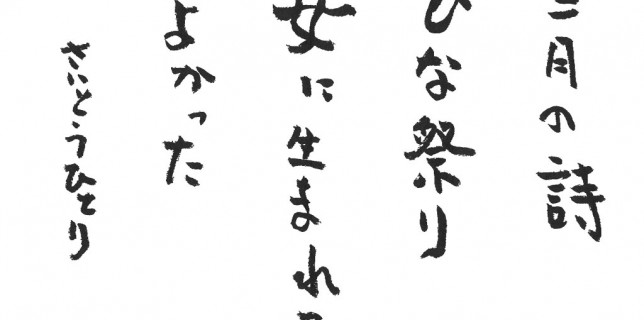 三月の詩
ひな祭り
女に生まれ
よかった
さいとうひとり